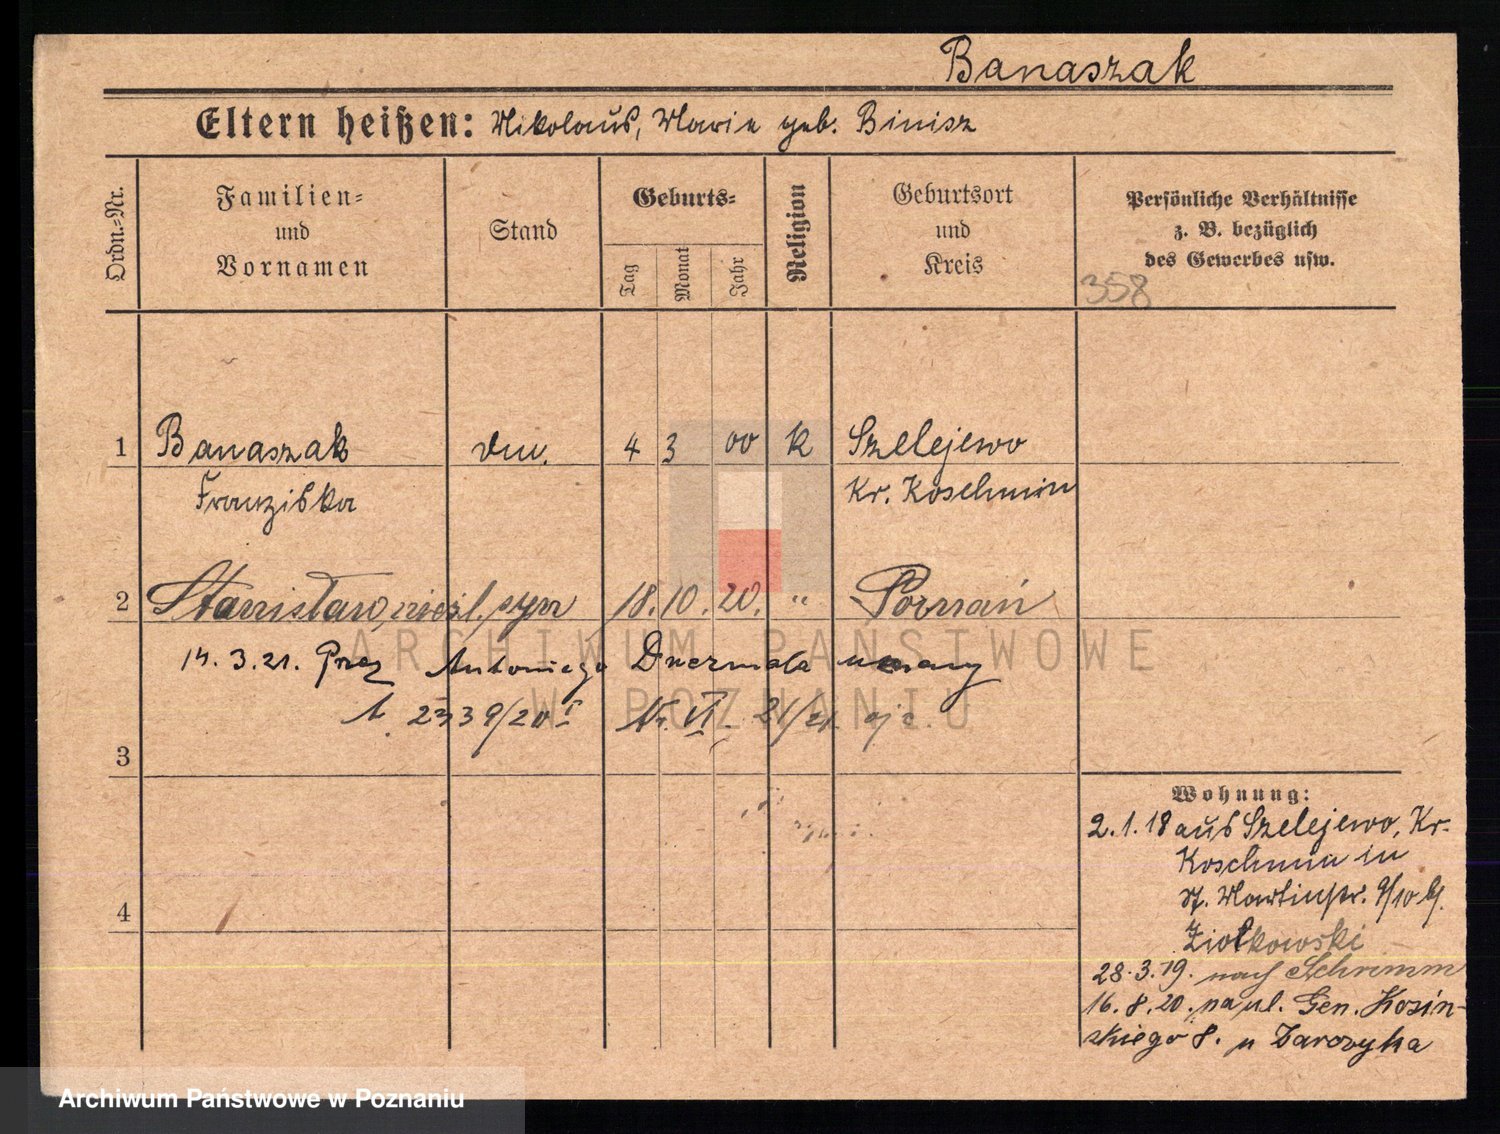 Banaszak
Eltern heißen: Nikolaus, Marie geb. Binisz
Ordn.=Nr.
Familien=
und
Vornamen
Stand
Geburts=
Tag
Monat
Jahr
Religion
Geburtsort
und
Kreis
Persönliche Verhältnisse
z. B. bezüglich
des Gewerbes usw.
358
1 Banaszak 4 3 00 K Szelejewo
Franziska Kr. Koschmin
2 Stanisław, nieśl. syn 18. 10. 20. " Poznań
14. 3. 21. Przez Antoniego uznany
2339/20 Nr. VI. 21/21
3
4
Wohnung:
2.1.18 aus Szelejewo, Kr.
Koschmin in
St. Martinstr. 9/10 b/.
Ziołkowski
28.3.19. nach Schrimm
16.8.20. na ul. Gen. Kosiń-
skiego 8. u
ARCHIWUM PAŃSTWOWE
W POZNANIU
Archiwum Państwowe w Poznaniu